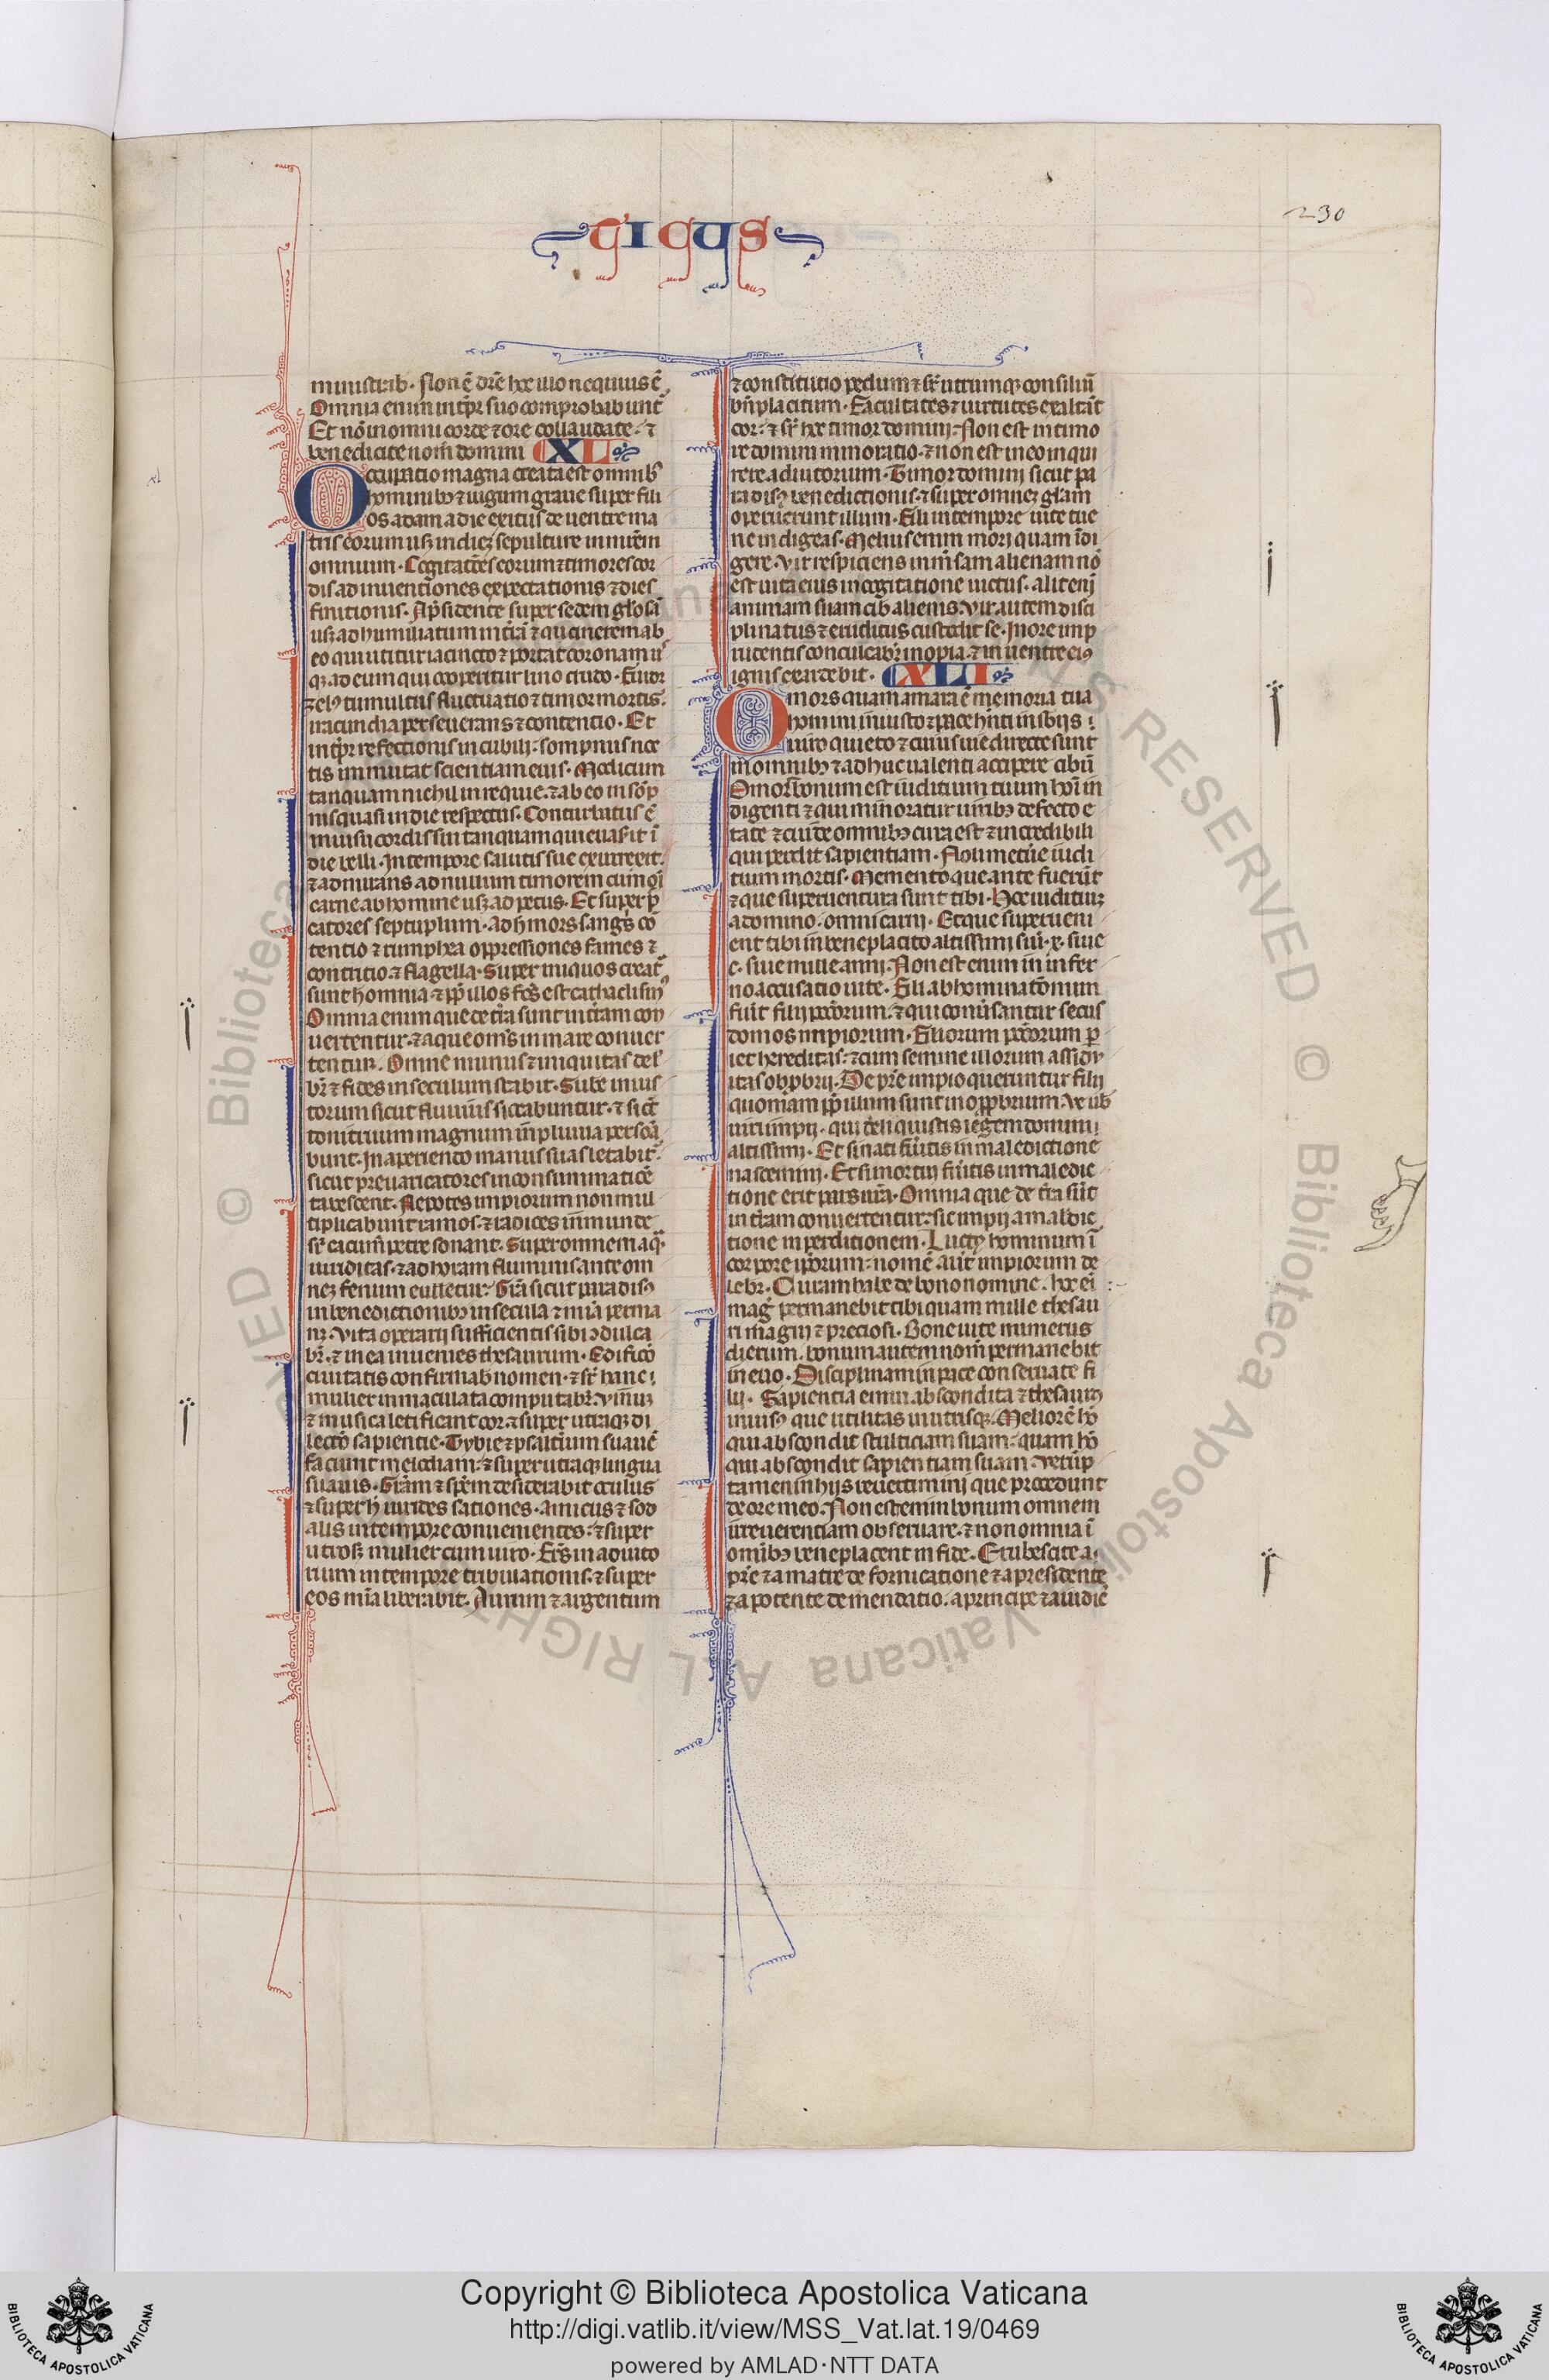 230
GICUS
ministrab. Non ē dr̄e hoc illo nequius ē
Omnia enim in tp̄r suo comprobabunt̄
Et nō in omni corde ⁊ ore collaudate. ⁊
benedicite nom̄ domini XL
Occupatio magna creata est omnibꝰ
hominibꝫ ⁊ iugum graue super fili
os adam a die exitus de uentre ma
tris eorum usqꝫ in dieꝫ sepulture in mr̄em
omnium. Cogitatōes eorum ⁊ timores cor
dis adinuentiones expectationis ⁊ dies
finitionis. A p̄sidente super sedem glōsā
usqꝫ ad humiliatum in tr̄ā ⁊ ⁊ cinerem ab
eo qui utitur iacincto ⁊ portat coronam u
qꝫ ad eum qui cooperitur lino crudo. Furor
zelꝰ tumultus fluctuatio ⁊ timor mortis.
iracundia perseuerans ⁊ contentio. Et
in tp̄r refectionis in cubili. sompnus noc
tis immutat scientiam eius. Modicum
tanquam nichil in requie. ⁊ ab eo in sōp
nis quasi in die respectus. Conturbatus ē
in uisu cordis sui tanquam qui euaserit ī
die belli. In tempore salutis sue exurrexit.
⁊ admirans ad nullum timorem cum oī
carne ab homine usqꝫ ad pecus. Et super p̄
catores septuplum. Ad h mors sangs cō
tentio ⁊ rumphea oppressiones fames ⁊
contritio ⁊ flagella. Super iniquos creat̄
sunt h omnia ⁊ pp̄ illos fcs̄ est cathaclismꝰ
Omnia enim que de tr̄a sunt in tr̄am con
uertentur. ⁊ aque oms̄ in mare conuer
tentur. Omne munus ⁊ iniquitas del
br̄ ⁊ fides in seculum stabit. Sube inius
torum sicut fluuius siccabuntur. ⁊ sict̄
tonitruum magnum in pluuia persoā
bunt. In aperiendo manus suas letabit̄.
sicut preuaricatores in consummatiōe
tabescent. Nepotes impiorum non mul
tiplicabunt ramos. ⁊ radices inmunde
sr̄ cacum̄ petre sonant. Super omnem aqꝫ
uiriditas. ⁊ ad horam fluminis ante om
neꝫ fenum euelletur. Grā sicut paradisꝰ
in benedictionibꝫ in secula ⁊ mīa perma
nꝫ. Vita operarij sufficientis sibi ꝯdulca
br̄. ⁊ in ea inuenies thesaurum. Edificō
ciuitatis confirmab nomen. ⁊ sr̄ hanc.
mulier inmaculata computabr̄. Vinuꝫ
⁊ musica letificant cor. ⁊ super utraqꝫ di
lectō sapientie. Tybie ⁊ psaltium suauē
faciunt melodiam. ⁊ super utraqꝫ lingua
suauis. Grām ⁊ sp̄em desiderabit oculus
⁊ super h uirides sationes. Amicus ⁊ sod
alis in tempore conuenientes. ⁊ super
utrosqꝫ mulier cum uiro. Frs̄ in adiuto
rium in tempore tribulationis. ⁊ super
eos mīa liberabit. Aurum ⁊ argentum
⁊ constitutio pedum ⁊ sr̄ utrumqꝫ consiliū
bn̄placitum. Facultates ⁊ uirtutes exaltāt
cor. ⁊ sr̄ hec timor domini. Non est in timo
re domini minoratio. ⁊ non est in eo inqui
rere adiutorium. Timor domini sicut pa
radisꝰ benedictionis. ⁊ super omneꝫ glam̄
operuerunt illum. Fili in tempore uite tue
ne indigeas. Melius enim mori quam īdi
gere. Vir respiciens in mensam alienam nō
est uita eius in cogitatione uictus. alit enī
animam suam cib alienis. Vir autem disci
plinatus ⁊ eruditus custodit se. In ore inp
rudentis conculcabr̄ inopia. ⁊ in uentre eiꝰ
ignis eardebit. XLI
O mors quam amara ē memoria tua
homini iniusto ⁊ pace hn̄ti in sb̄ijs.
uiro quieto ⁊ cuius uie directe sunt
in omnibꝫ ⁊ adhuc ualenti accipere cibū
O mors bonum est iuditium tuum hoī in
digenti ⁊ qui minoratur uiribꝫ defecto e
tate ⁊ cui de omnibꝫ cura est ⁊ incredibili
qui perdit sapientiam. Noli metue iudi
tium mortis. Memento que ante fuerūt
⁊ que superuentura sunt tibi. Hoc iudituꝫ
a domino. omni carni. Et que superueni
ent tibi in beneplacito altissimi siu. x. siue
c. siue mille anni. Non est enim in infer
no accusatio uite. Fili abhominatōnum
fiūt filij pctōrum. ⁊ qui comūsantur secus
domos impiorum. Filiorum pctōrum p
iet hereditas. ⁊ cum semine illorum assidu
itas obp̄brij. De pr̄e impio queruntur filij
quoniam pp̄ illum sunt in opprobrium. Ve uob
uiri impij. qui dereliquistis legem domini
altissimi. Et si nati fūitis in maledictione
nascemini. Et si mortui fūitis in maledic
tione erit pars ur̄a. Omnia que de tr̄a sūt
in tr̄am conuertentur. sic impij a maldic
tione in perditionem. Luctꝰ hominum ī
corpore ipsorum. nomē aut̄ impiorum de
lebr̄. Curam habe de bono nomine. hoc eī
mag permanebit tibi quam mille thesau
ri magni ⁊ preciosi. Bone uite numerus
dierum. bonum autem nom̄ permanebit
in euo. Disciplinam in pace conseruate fi
lij. Sapientia enim abscondita ⁊ thesaurꝰ
inuisꝰ que utilitas in utrisqꝫ. Meliorē hō
qui abscondit stulticiam suam. quam hō
qui abscondit sapientiam suam. Verūp
tamen in hijs reuertimini que procedunt
de ore meo. Non est enim bonum omnem
irreuerentiam obseruare. ⁊ non omnia ī
omībꝫ beneplacent in fide. Erubescite a
pr̄e ⁊ a matre de fornicatione ⁊ a presidente
⁊ a potente de mendatio. a principe ⁊ a iudicē
Copyright © Biblioteca Apostolica Vaticana
http://digi.vatlib.it/view/MSS_Vat.lat.19/0469
powered by AMLAD·NTT DATA
BIBLIOTECA APOSTOLICA VATICANA
BIBLIOTECA APOSTOLICA VATICANA